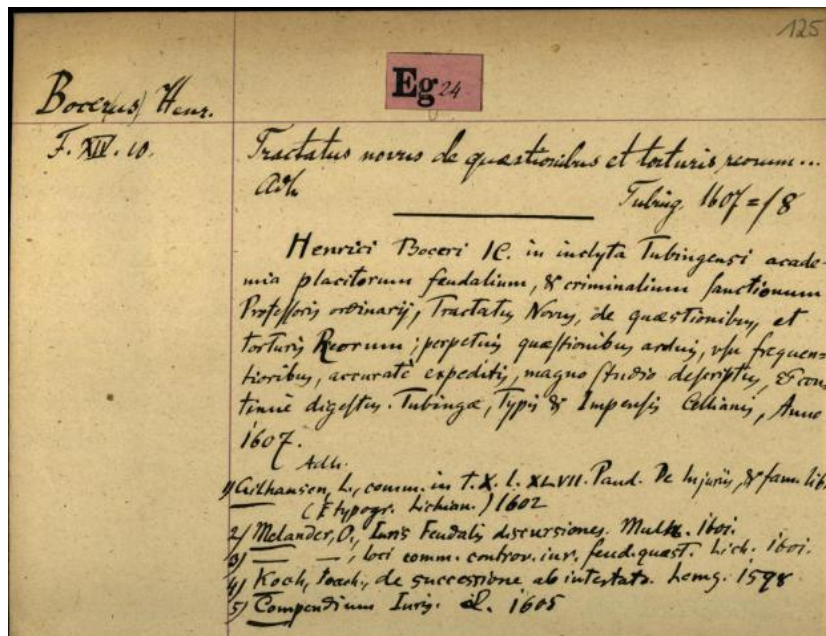 125
Eg 24
Bocer(us) Henr.
F. XIV. 10.
Tractatus novus de quaestionibus et torturis reorum...
Adh. Tubing 1607 = f 8
Henrici Boceri IC. in inclyta Tubingensi acade-
mia placitorum feudalium, & criminalium sanctionum
Professoris ordinarij, Tractatus Novus, de quaestionibus, et
torturis Reorum; perpetuis quaestionibus arduis, usu frequen=
tioribus, accuratè expeditis, magno studio descriptus, & con
tinuè digestus. Tubingæ, Typis & Impensis Cellianis, Anno
1607.
Adh.
1) Gilhausen, L., comm. in T. X. l. XLVII. Pand. De Injuriis, & fam. lib
(E typogr. Lichian.) 1602
2) Melander, O., Iuris Feudalis discursiones. 1601.
3) — —, loci comm. controv. iur. feud. quaest. Lich. 1601.
4) Koch, Joach., de successione ab intestato. Lemg. 1598
5) Compendium Iuris. 1605